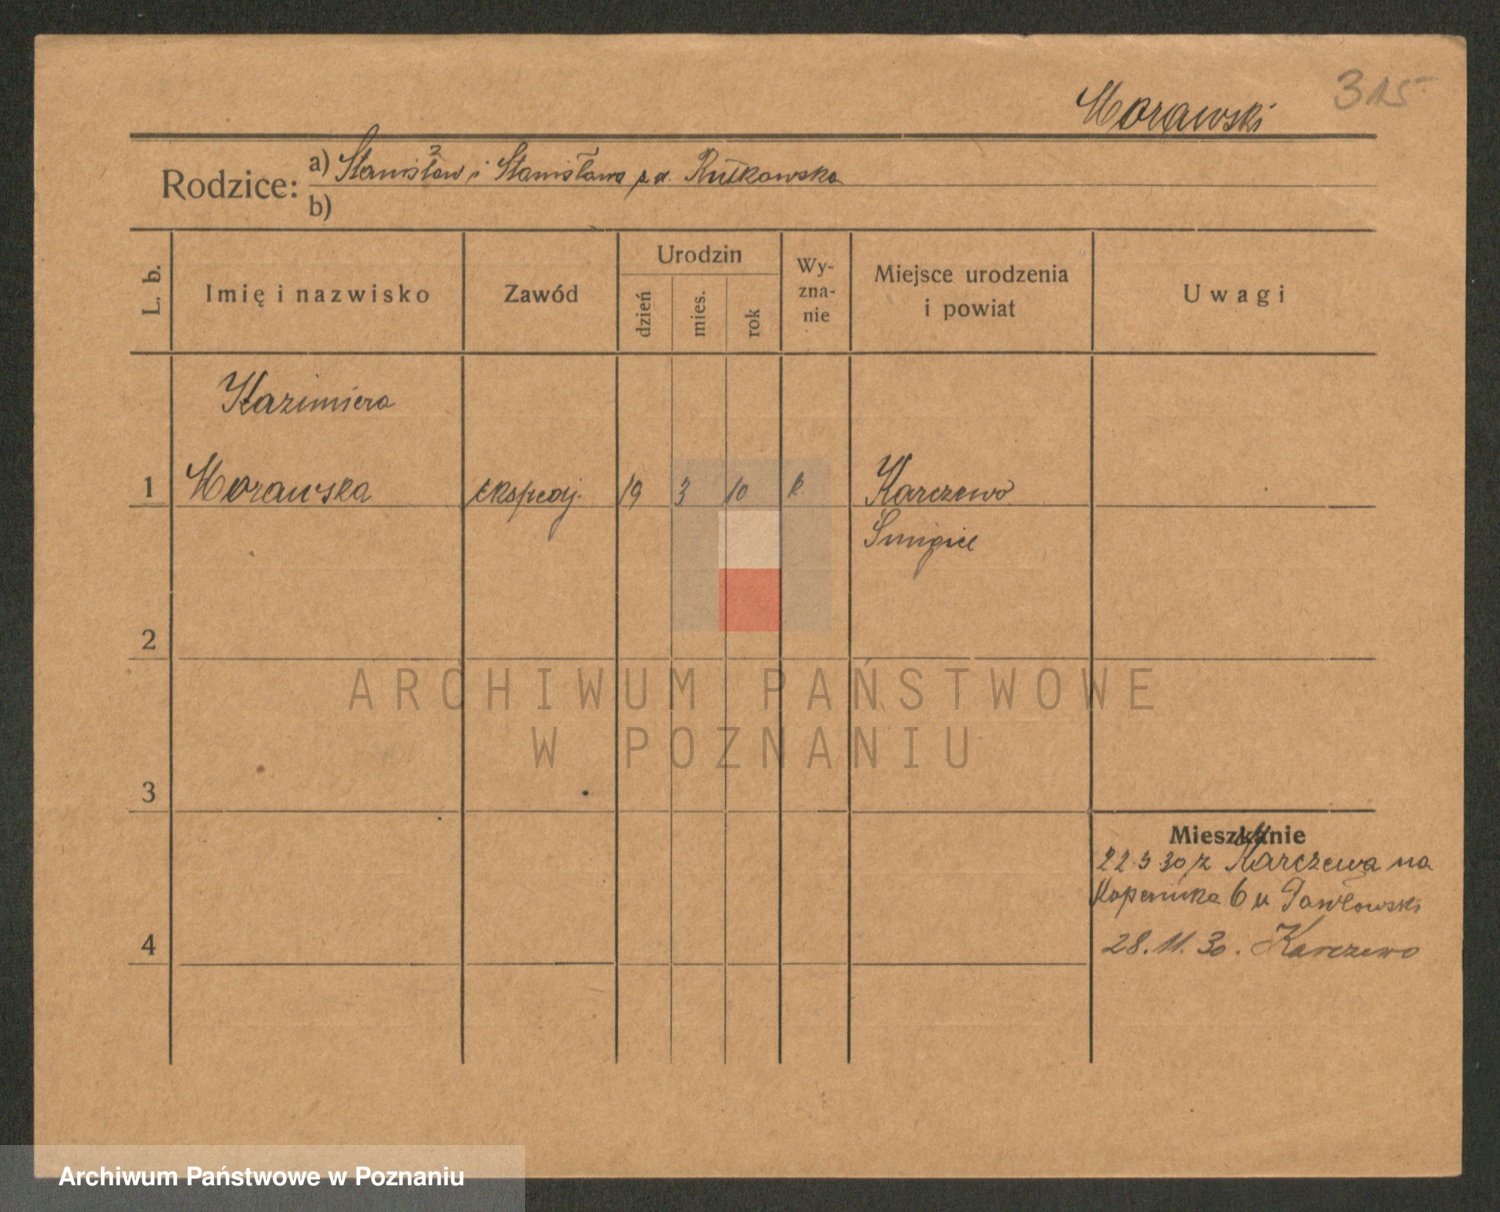 315
Morawski
Rodzice: a) Stanisław i Stanisława Rutkowska
b)
L. b.
Imię i nazwisko
Zawód
Urodzin
dzień
mies.
rok
Wy-
zna-
nie
Miejsce urodzenia
i powiat
Uwagi
Kazimiera
1 Morawska ekspedj. 19 3 10 k Karczewo
Śmigiel
2
ARCHIWUM PAŃSTWOWE
W POZNANIU
3
Mieszkanie
22.5 30 z Karczewa na
Kopernika 6 u Pawłowski
4
28.11.30. Karczewo
Archiwum Państwowe w Poznaniu